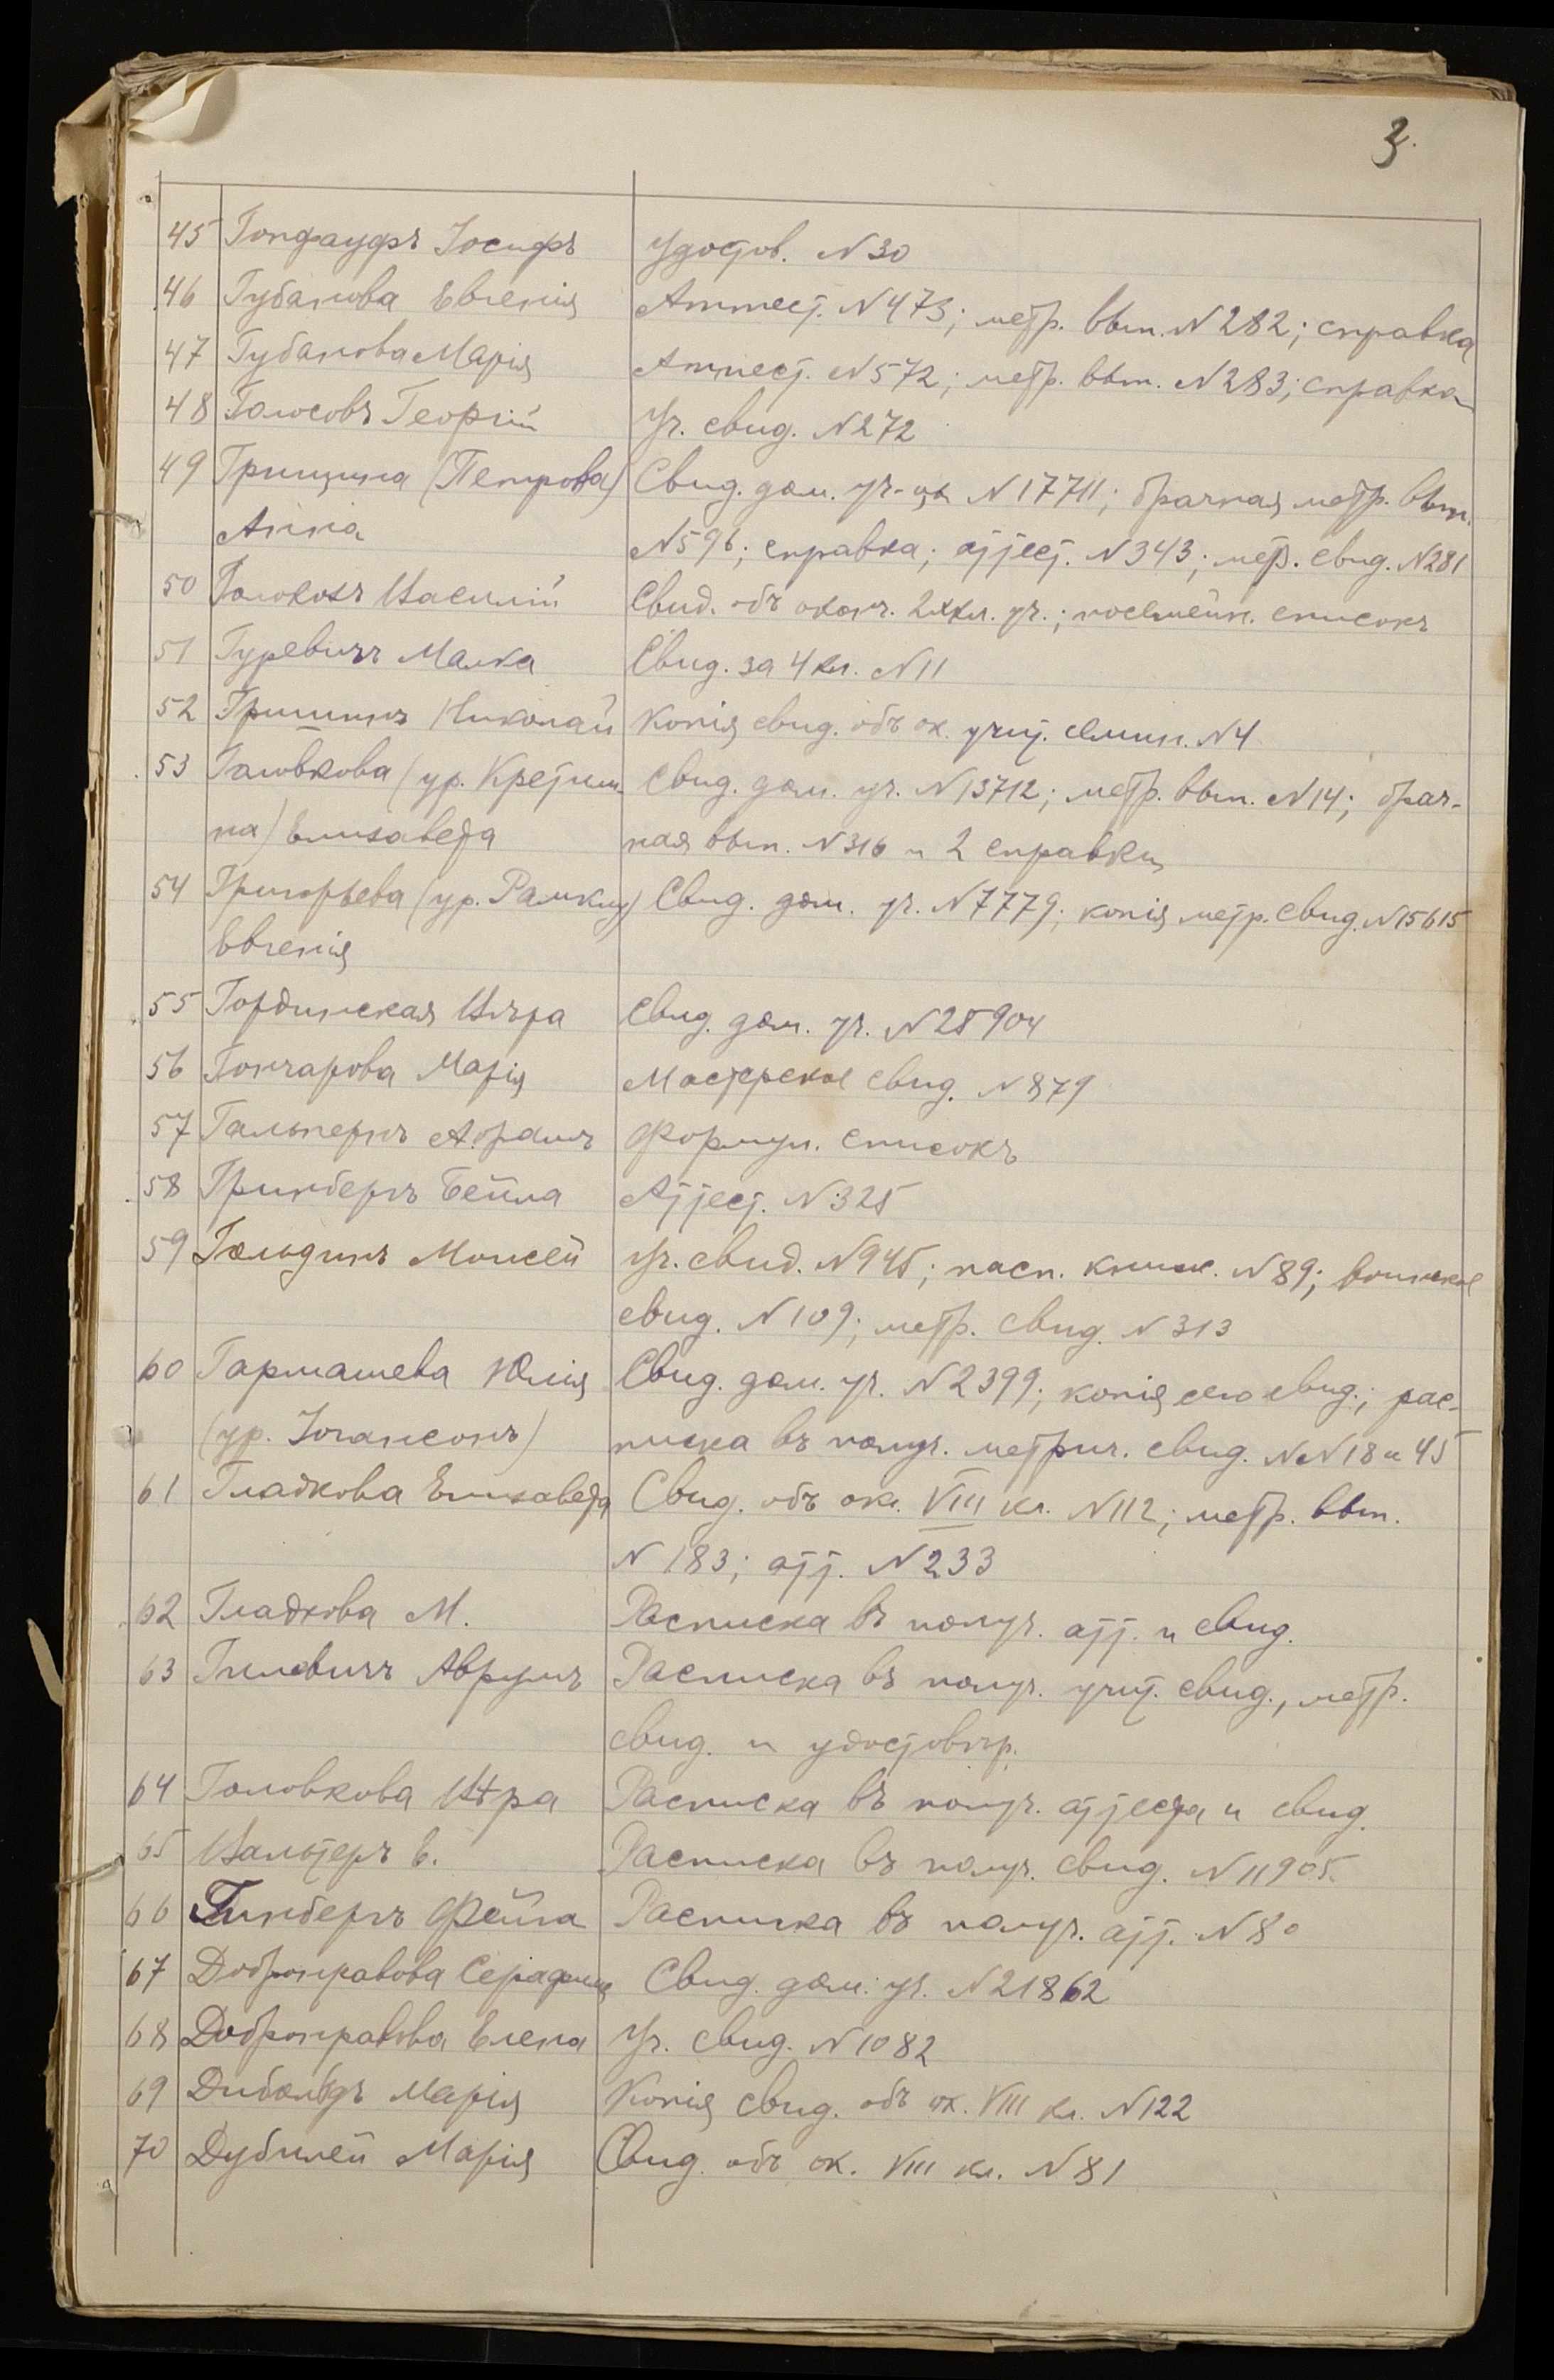 3.
45 Гопфауфъ Іосифъ удостов. N 30
46 Губанова Евгенія Аттест. N 473; метр. вып. N 282; справка
47 Губанова Марія Аттест. N 572; метр. вып. N 283; справка
48 Голосовъ Георгій Уч. свид. N 272
49 Грищина (Петрова) Свид. дом. уч-цы N 17711; брачная метр. вып.
Анна N 596; справка; аттест. N 343; мет. свид. N 281
50 Головозъ Василій Свид. объ оконч. 2хкл. уч.; посемейн. списокъ
51 Гуревичъ Малка Свид. за 4 кл. N 11
52 Гришинъ Николай Копія свид. объ ок. учит. семин. N 4
53 Головкова (ур. Кретини- Свид. дом. уч. N 13712; метр. вып. N 14; брач-
на) Елизавета ная вып. N 316 и 2 справки
54 Григорьева (ур. Рамкиу) Свид. дом. уч. N 7779; копія метр. свид. N 15615
Евгенія
55 Гординская Вѣра Свид. дом. уч. N 28904
56 Гончарова Марія Мастерское свид. N 879
57 Гальперинъ Абрамъ Формул. списокъ
58 Гринбергъ Бейла Аттест. N 325
59 Гольдинъ Моисей Уч. свид. N 945; пасп. книж. N 89; воинское
свид. N 109; метр. свид. N 313
60 Гармашева Юлія Свид. дом. уч. N 2399; копія сего свид.; рас-
(ур. Іогансонъ) писка въ получ. метрич. свид. NN 18 и 45
61 Гладкова Елизавета Свид. объ ок. VIII кл. N 112; метр. вып.
N 183; атт. N 233
62 Гладкова М. Расписка въ получ. атт. и свид.
63 Гилевичъ Аврумъ Расписка въ получ. учит. свид., метр.
свид. и удостовѣр.
64 Головкова Вѣра Расписка въ получ. аттеста и свид.
65 Вальтеръ Е. Расписка въ получ. свид. N 11905.
66 Гинбергъ Фейга Расписка въ получ. атт. N 80
67 Добронравова Серафима Свид. дом. уч. N 21862
68 Добронравова Елена Уч. свид. N 1082
69 Дибольдъ Марія Копія свид. объ ок. VIII кл. N 122
70 Дубилей Марія Свид. объ ок. VIII кл. N 81